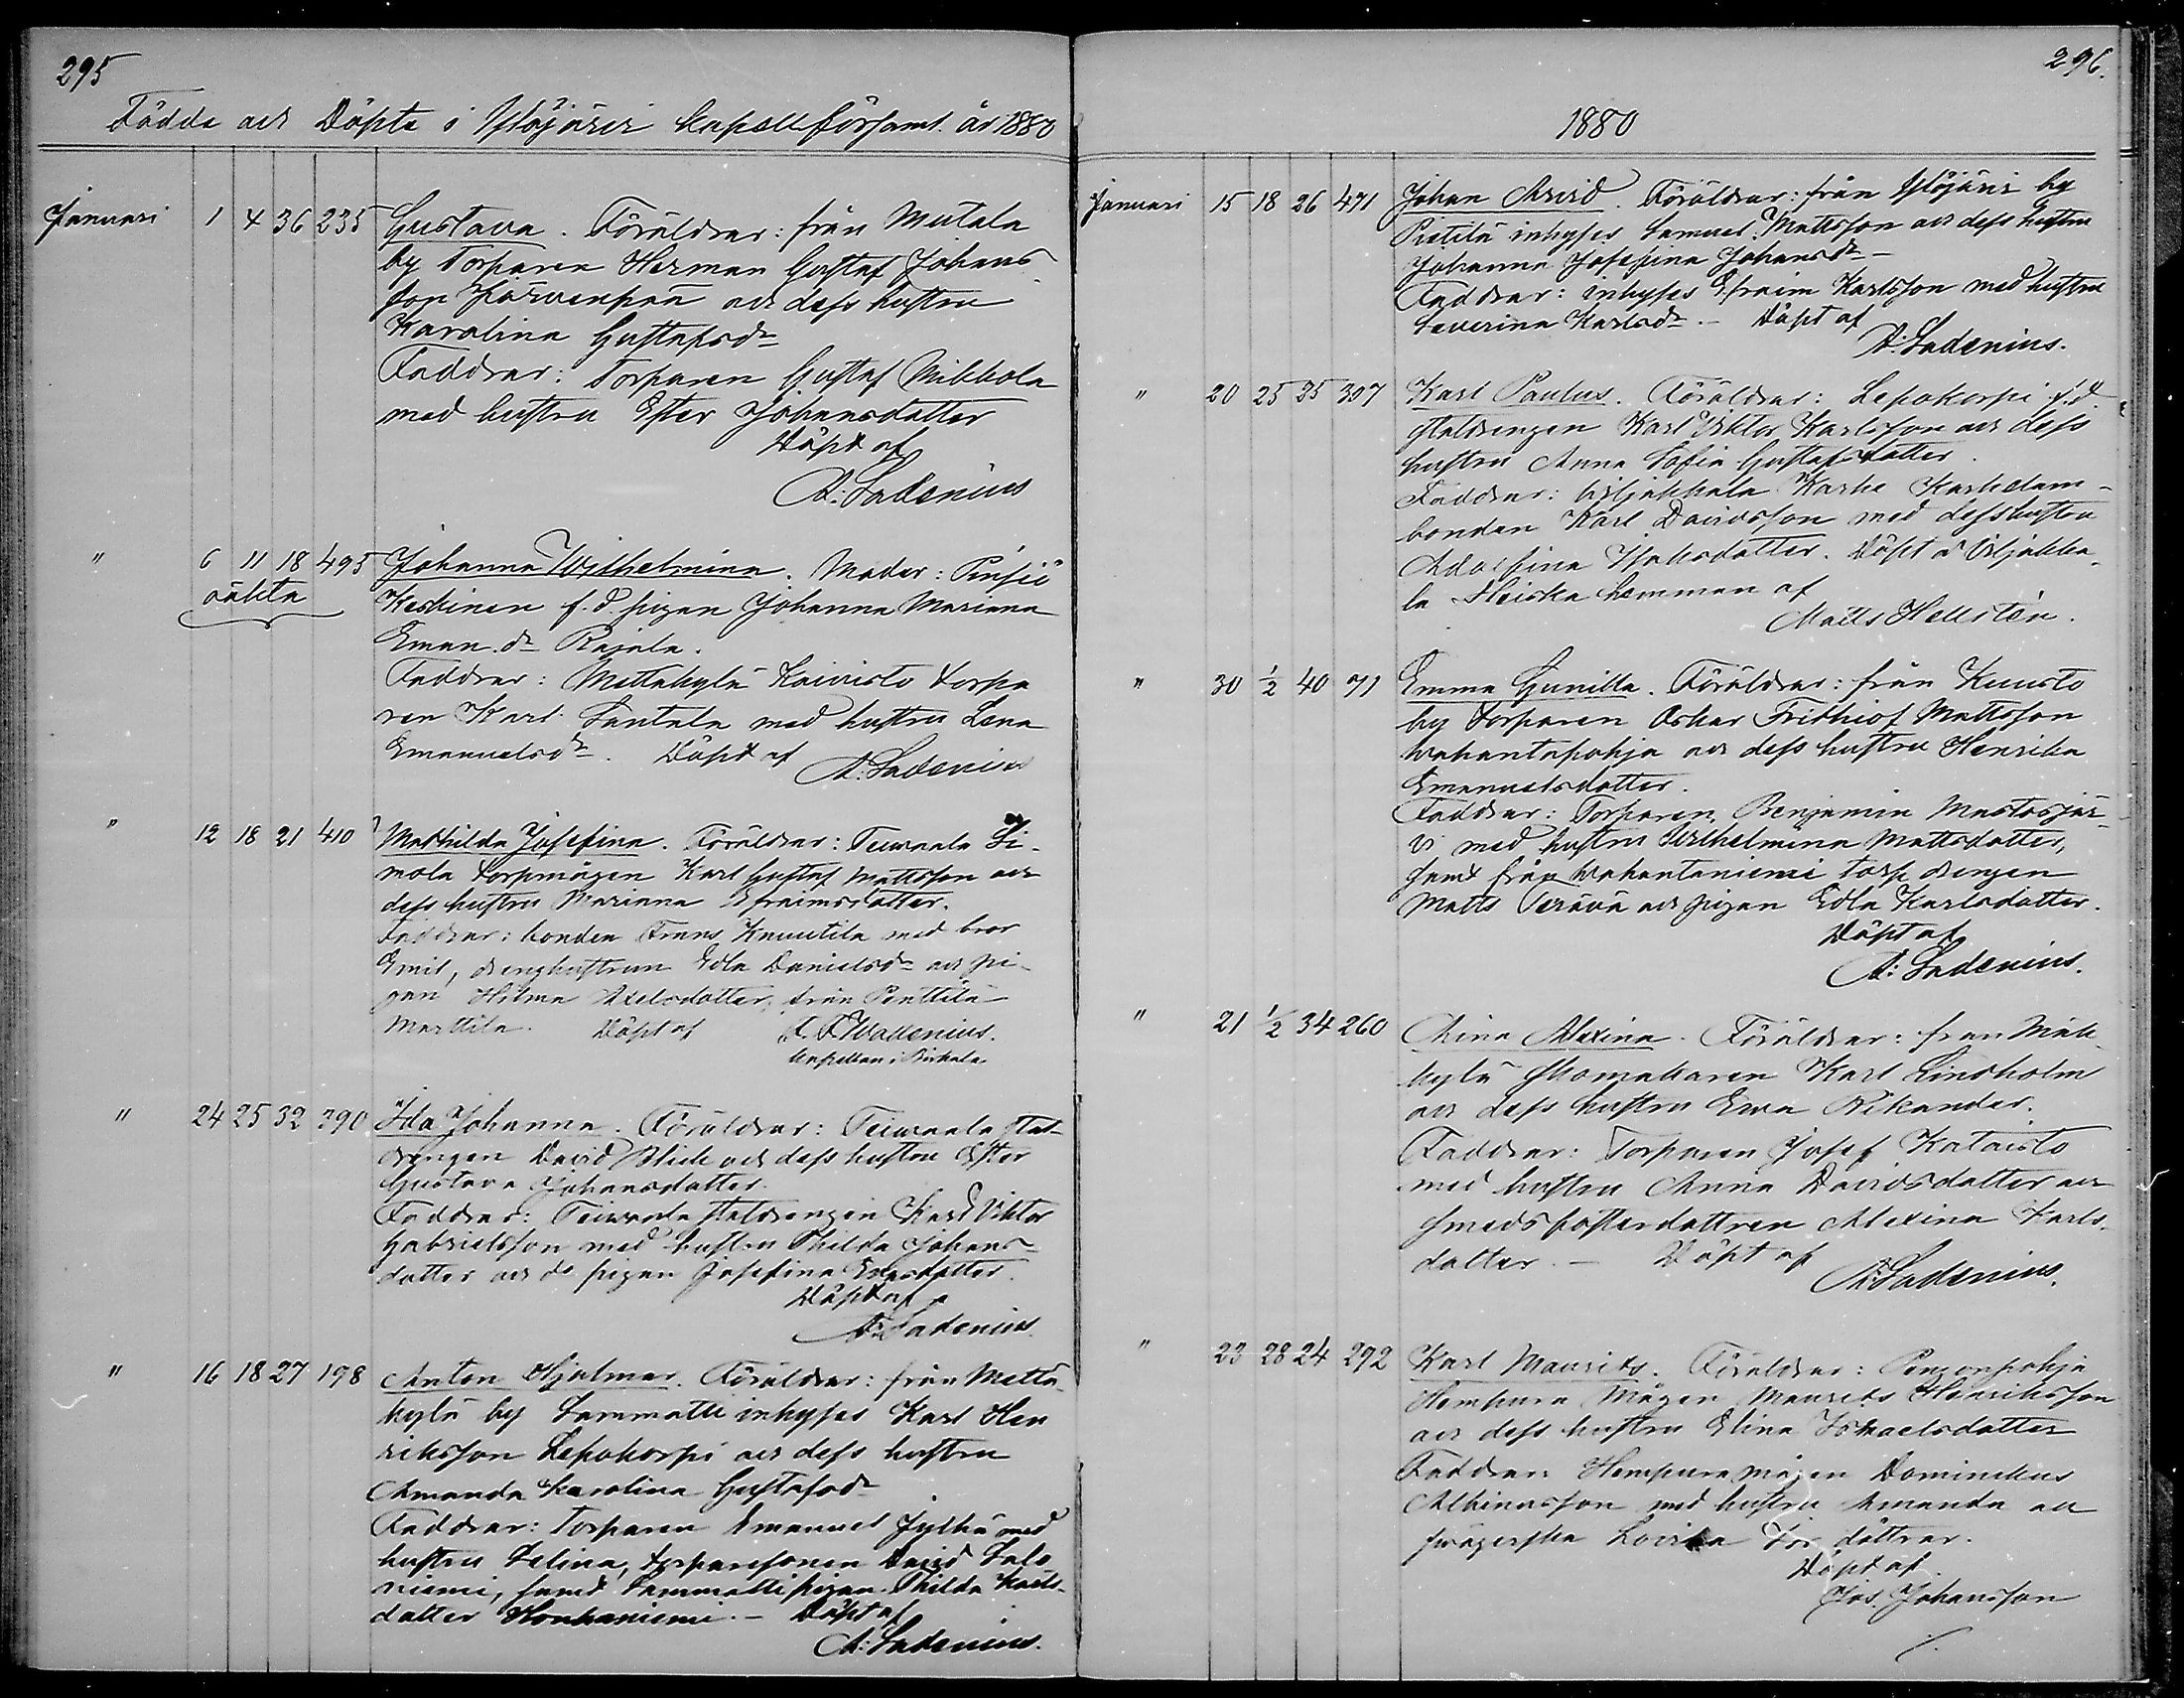 295
Födde och Döpte i Ylöjärvi kapellförsaml. år 1880
Januari 1 4 36 235 Gustava. Föräldrar: från Mutala
by Torparen Herman Gustaf Johans
son Järvenpää och dess hustru
Karolina Gustafsdr
Faddrar: Torparen Gustaf Mikkola
med hustru Ester Johansdotter
Döpt af
A: Ladenius
" 6 11 18 495 Johanna Wilhelmina. Moder: Pinsiö
oäkta
Keskinen f.d. pigan Johanna Mariana
Eman.dr Rajala.
Faddrar: Mettäkylä Koivisto torpa
ren Karl Santala med hustru Lena
Emanuelsdr. Döpt af A: Ladenius
" 12 18 21 410 Mathilda Josefina. Föräldrar: Teivaala Si-
mola torpmågen Karl Gustaf Mattsson och
dess hustru Marianna Efraimsdotter.
Faddrar: bonden Frans Knuutila med bror
Emil, drenghustrun Edla Danielsdr och pi-
gan Hilma Axelsdotter, från Penttilä
Marttila. Döpt af K. F. Wadenius.
Kapellan i Birkala
" 24 25 32 390 Ida Johanna. Föräldrar: Teivaala stat-
drengen David Blick och dess hustru Ester
Gustava Johansdotter.
Faddrar: Teivaala statdrengen Karl Viktor
Gabrielsson med hustru Thilda Johans-
dotter och do pigan Josefina Esasdotter.
Döpt af
A: Ladenius
" 16 18 27 198 Anton Hjalmar. Föräldrar: från Mettä-
kylä by Sammatti inhyses Karl Hen
riksson Lepokorpi och dess hustru
Amanda Karolina Gustafsdr
Faddrar: Torparen Emanuel Jylhä med
hustru Selina, torparesonen David Salo
niemi, samt Sammatti pigan Thilda Karls-
dotter Kouhaniemi. – Döpt af
A: Ladenius.
296.
1880
Januari 15 18 26 471 Johan Arvid. Föräldrar: från Ylöjärvi by
Pietilä inhyses Samuel Mattsson och dess hustru
Johanna Josefina Johansdr –
Faddrar: inhyses Efraim Karlsson med hustru
Severina Karlsdr. – Döpt af
A: Ladenius.
" 20 25 35 307 Karl Paulus. Föräldrar: Lepokorpi f.d.
statdrengen Karl Viktor Karlsson och dess
hustru Anna Sofia Gustafsdotter.
Faddrar: Viljakkala Karhe
bonden Karl Davidsson med dess hustru
Adolfina Isaksdotter. Döpt å Viljakka-
la Heiska hemman af
Matts Hellstén.
" 30 1/2 40 71 Emma Gunilla. Föräldrar: från Kuusto
by torparen Oskar Frithiof Mattsson
Wahantapohja och dess hustru Henrika
Emanuelsdotter.
Faddrar: Torparen Benjamin Mastosjär-
vi med hustru Wilhelmina Mattsdotter,
samt från Wahantaniemi torp drengen
Matts Perävä och pigan Edla Karlsdotter.
Döpt af
A: Ladenius.
" 21 1/2 34 260 Mina Alexina. Föräldrar: från Mäk-
kylä skomakaren Karl Lindholm
och dess hustru Ewa Nikander.
Faddrar: Torparen Josef Kataisto
med hustru Anna Davidsdotter och
smeds fosterdottren Alexina Karls-
dotter. – Döpt af
A: Ladenius.
" 23 28 24 292 Karl Maurits. Föräldrar: Pengonpohja
Hempura Mågen Maurits Henriksson
och dess hustru Elina Ismaelsdotter
Faddrar: Hempura mågen Dominikus
Albinusson med hustru Amanda och
svägerska Lovisa döttrar.
Döpt af
Jos. Johansson